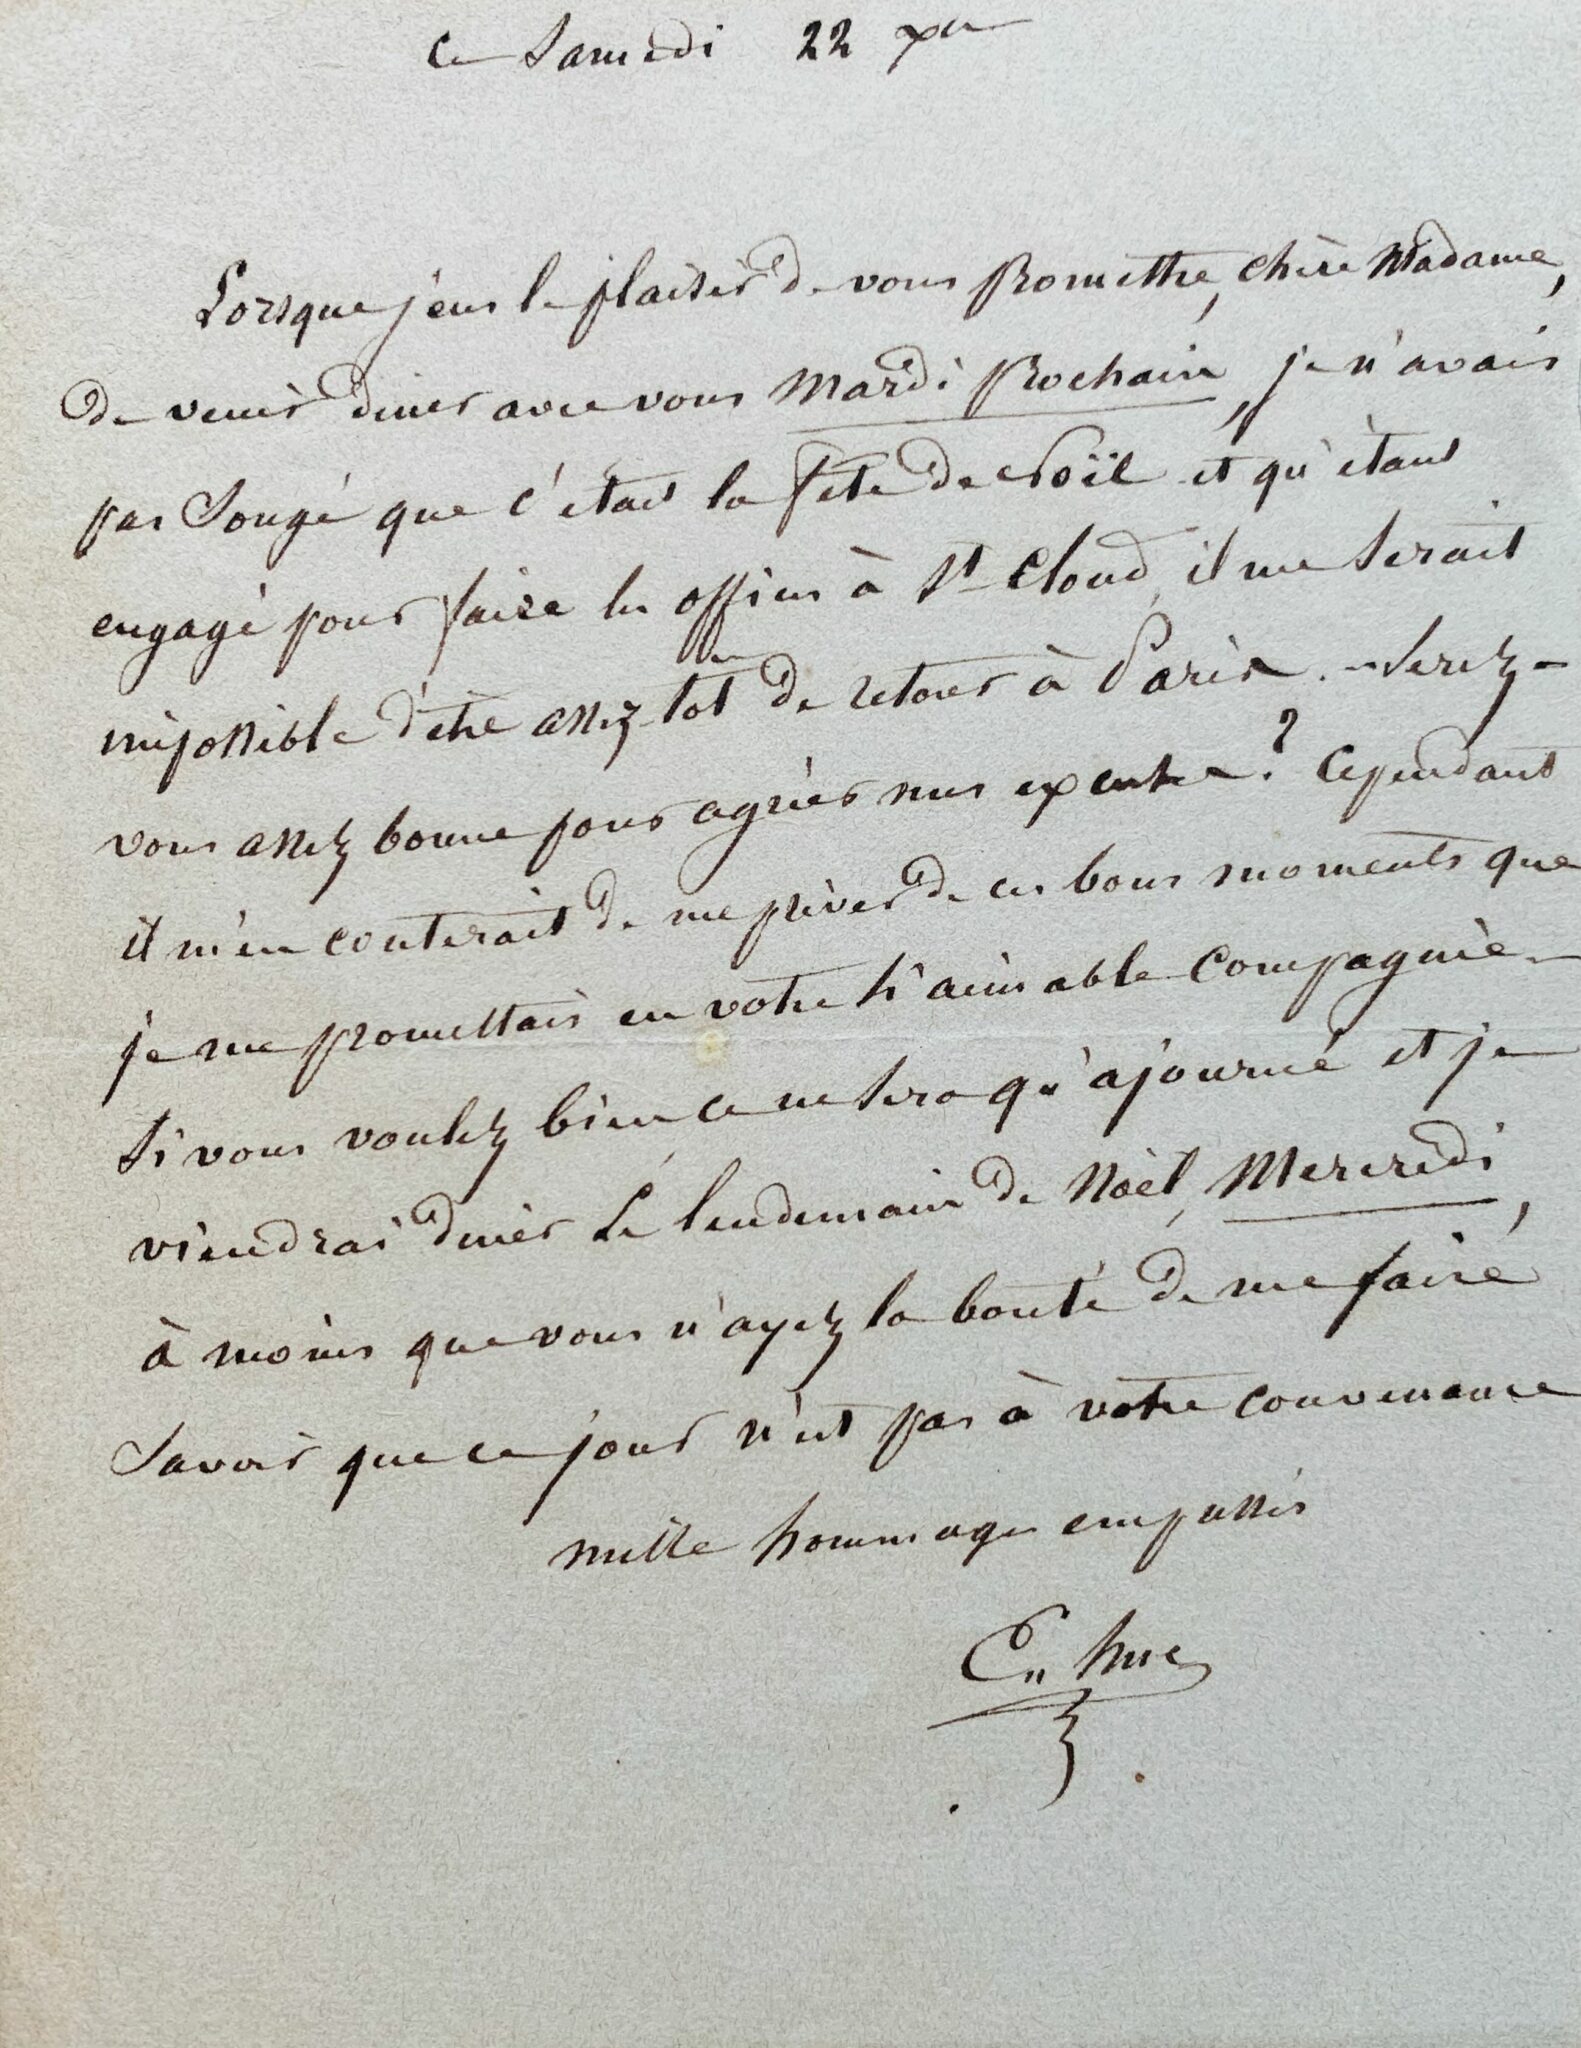 ce Samedi 22 xbre
Lorsque j'eus le plaisir de vous promettre, chère Madame,
de venir diner avec vous Mardi prochain, je n'avais
pas songé que c'était la fête de Noël et qu'étant
engagé pour faire les offices à St Cloud, il me serait
impossible d'être assez tôt de retour à Paris. - Serez-
vous assez bonne pour agréer mes excuses ? Cependant
il m'en couterait de me priver de ces bons moments que
je me promettais en votre si aimable compagnie -
Si vous voulez bien ce ne sera qu'ajourné et je
viendrai diner le lendemain de Noël, Mercredi,
à moins que vous n'ayez la bonté de me faire
savoir que ce jour n'est pas à votre convenance
mille hommages empressés
Huc